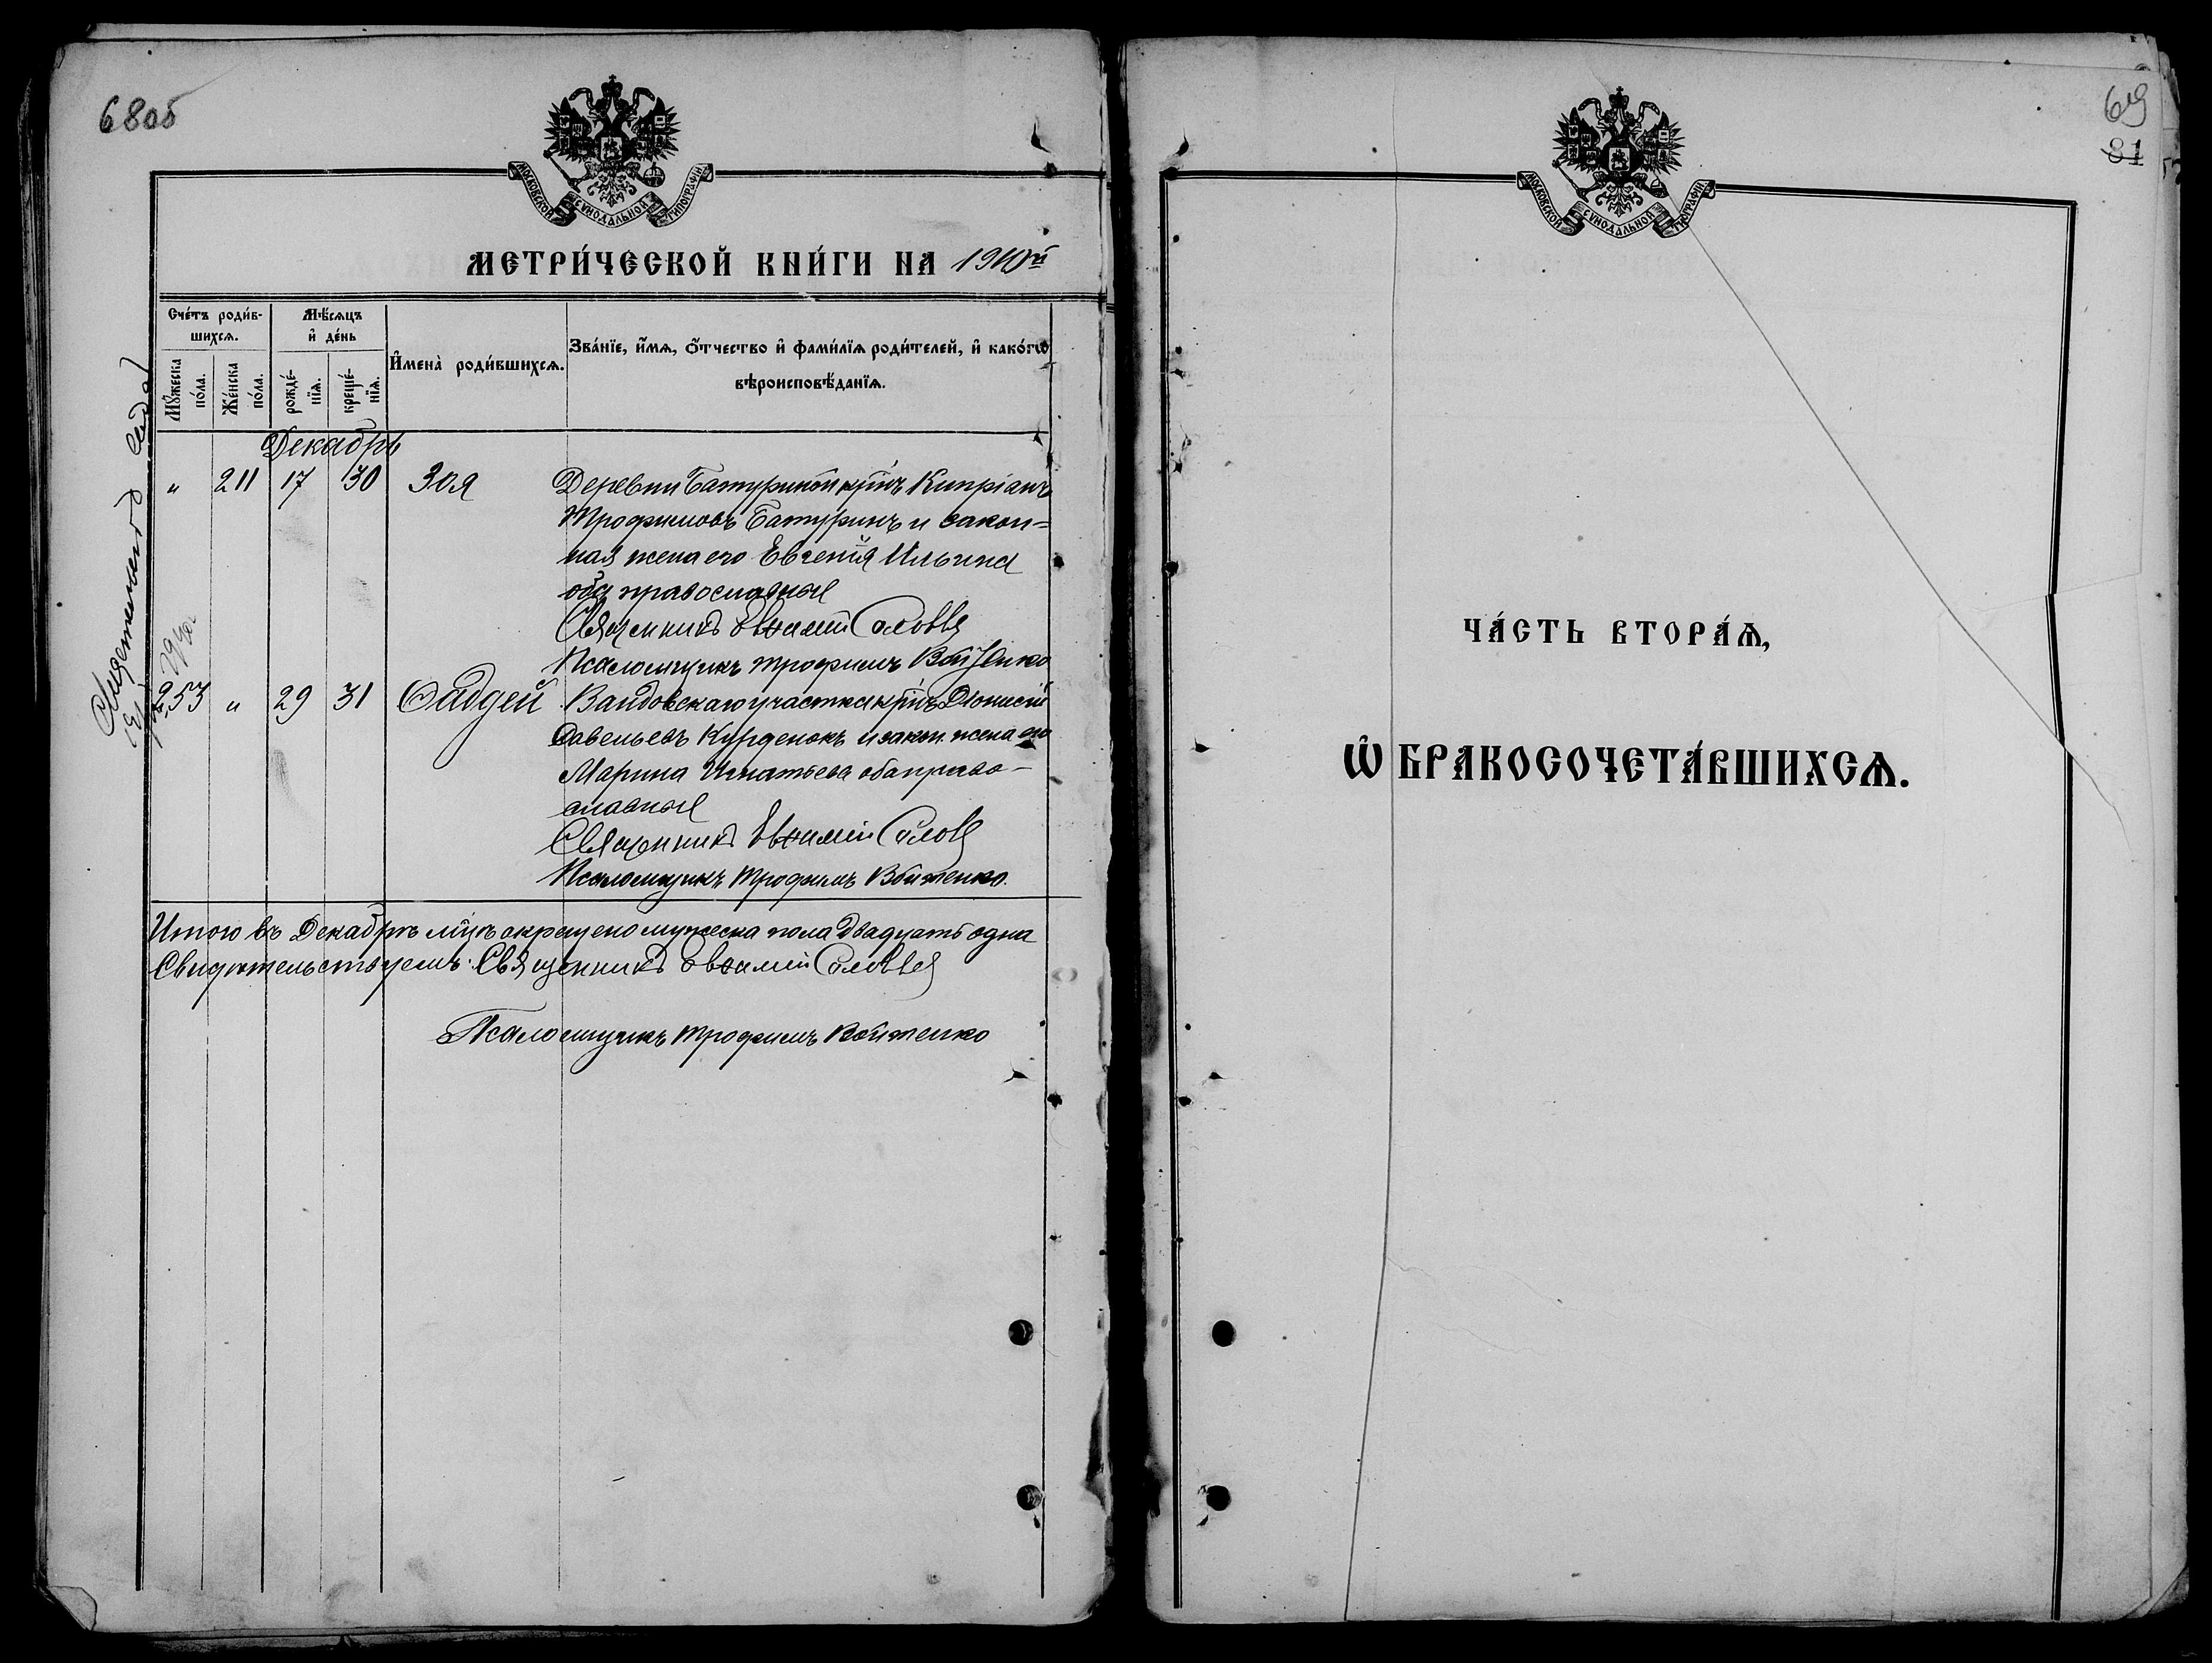 68об
МОСКОВСКОЙ СѴНОДАЛЬНОЙ ТИПОГРАФІИ
МЕТРИ́ЧЕСКОЙ КНИ́ГИ НА 1910й
Сче́тъ роди́в-
шихсѧ.
Мѣ́сѧцъ
и҆ де́нь
И҆мена̀ роди́вшихсѧ.
Зва́нїе, и҆́мѧ, ѻ҆́тчество и҆ фами́лїѧ роди́телей, и҆ како́гѡ
вѣроисповѣ́данїѧ.
Мꙋ́жеска по́ла.
Же́нска по́ла.
рожде́-
нїѧ.
креще́-
нїѧ.
Декабрь
" 211 17 30 Зоя Деревни Батуриной кр҃нъ Кипріанъ
Трофимовъ Батуринъ и закон=
ная жена его Евгенія Ильина
оба православные
Священникъ Евѳимій Соловье
Псаломщикъ Трофимъ Войтенко
253 " 29 31 Ѳаддей Вандовскаго участка кр҃нъ Діонисій
Савельевъ Курденокъ и закон. жена его
Марина Игнатьева оба право-
славные
Священникъ Евѳимій Соловье
Псаломщикъ Трофимъ Войтенко.
Итого въ Декабрѣ мцѣ окрещено мужеска пола двадцать одна
Свидѣтельствуемъ: Священникъ Евѳимій Соловьев
Псаломщикъ Трофимъ Войтенко
69
81
МОСКОВСКОЙ СѴНОДАЛЬНОЙ ТИПОГРАФІИ
ЧА́СТЬ ВТОРА́Ѧ,
Ѡ҆ БРАКОСОЧЕТА́ВШИХСѦ.